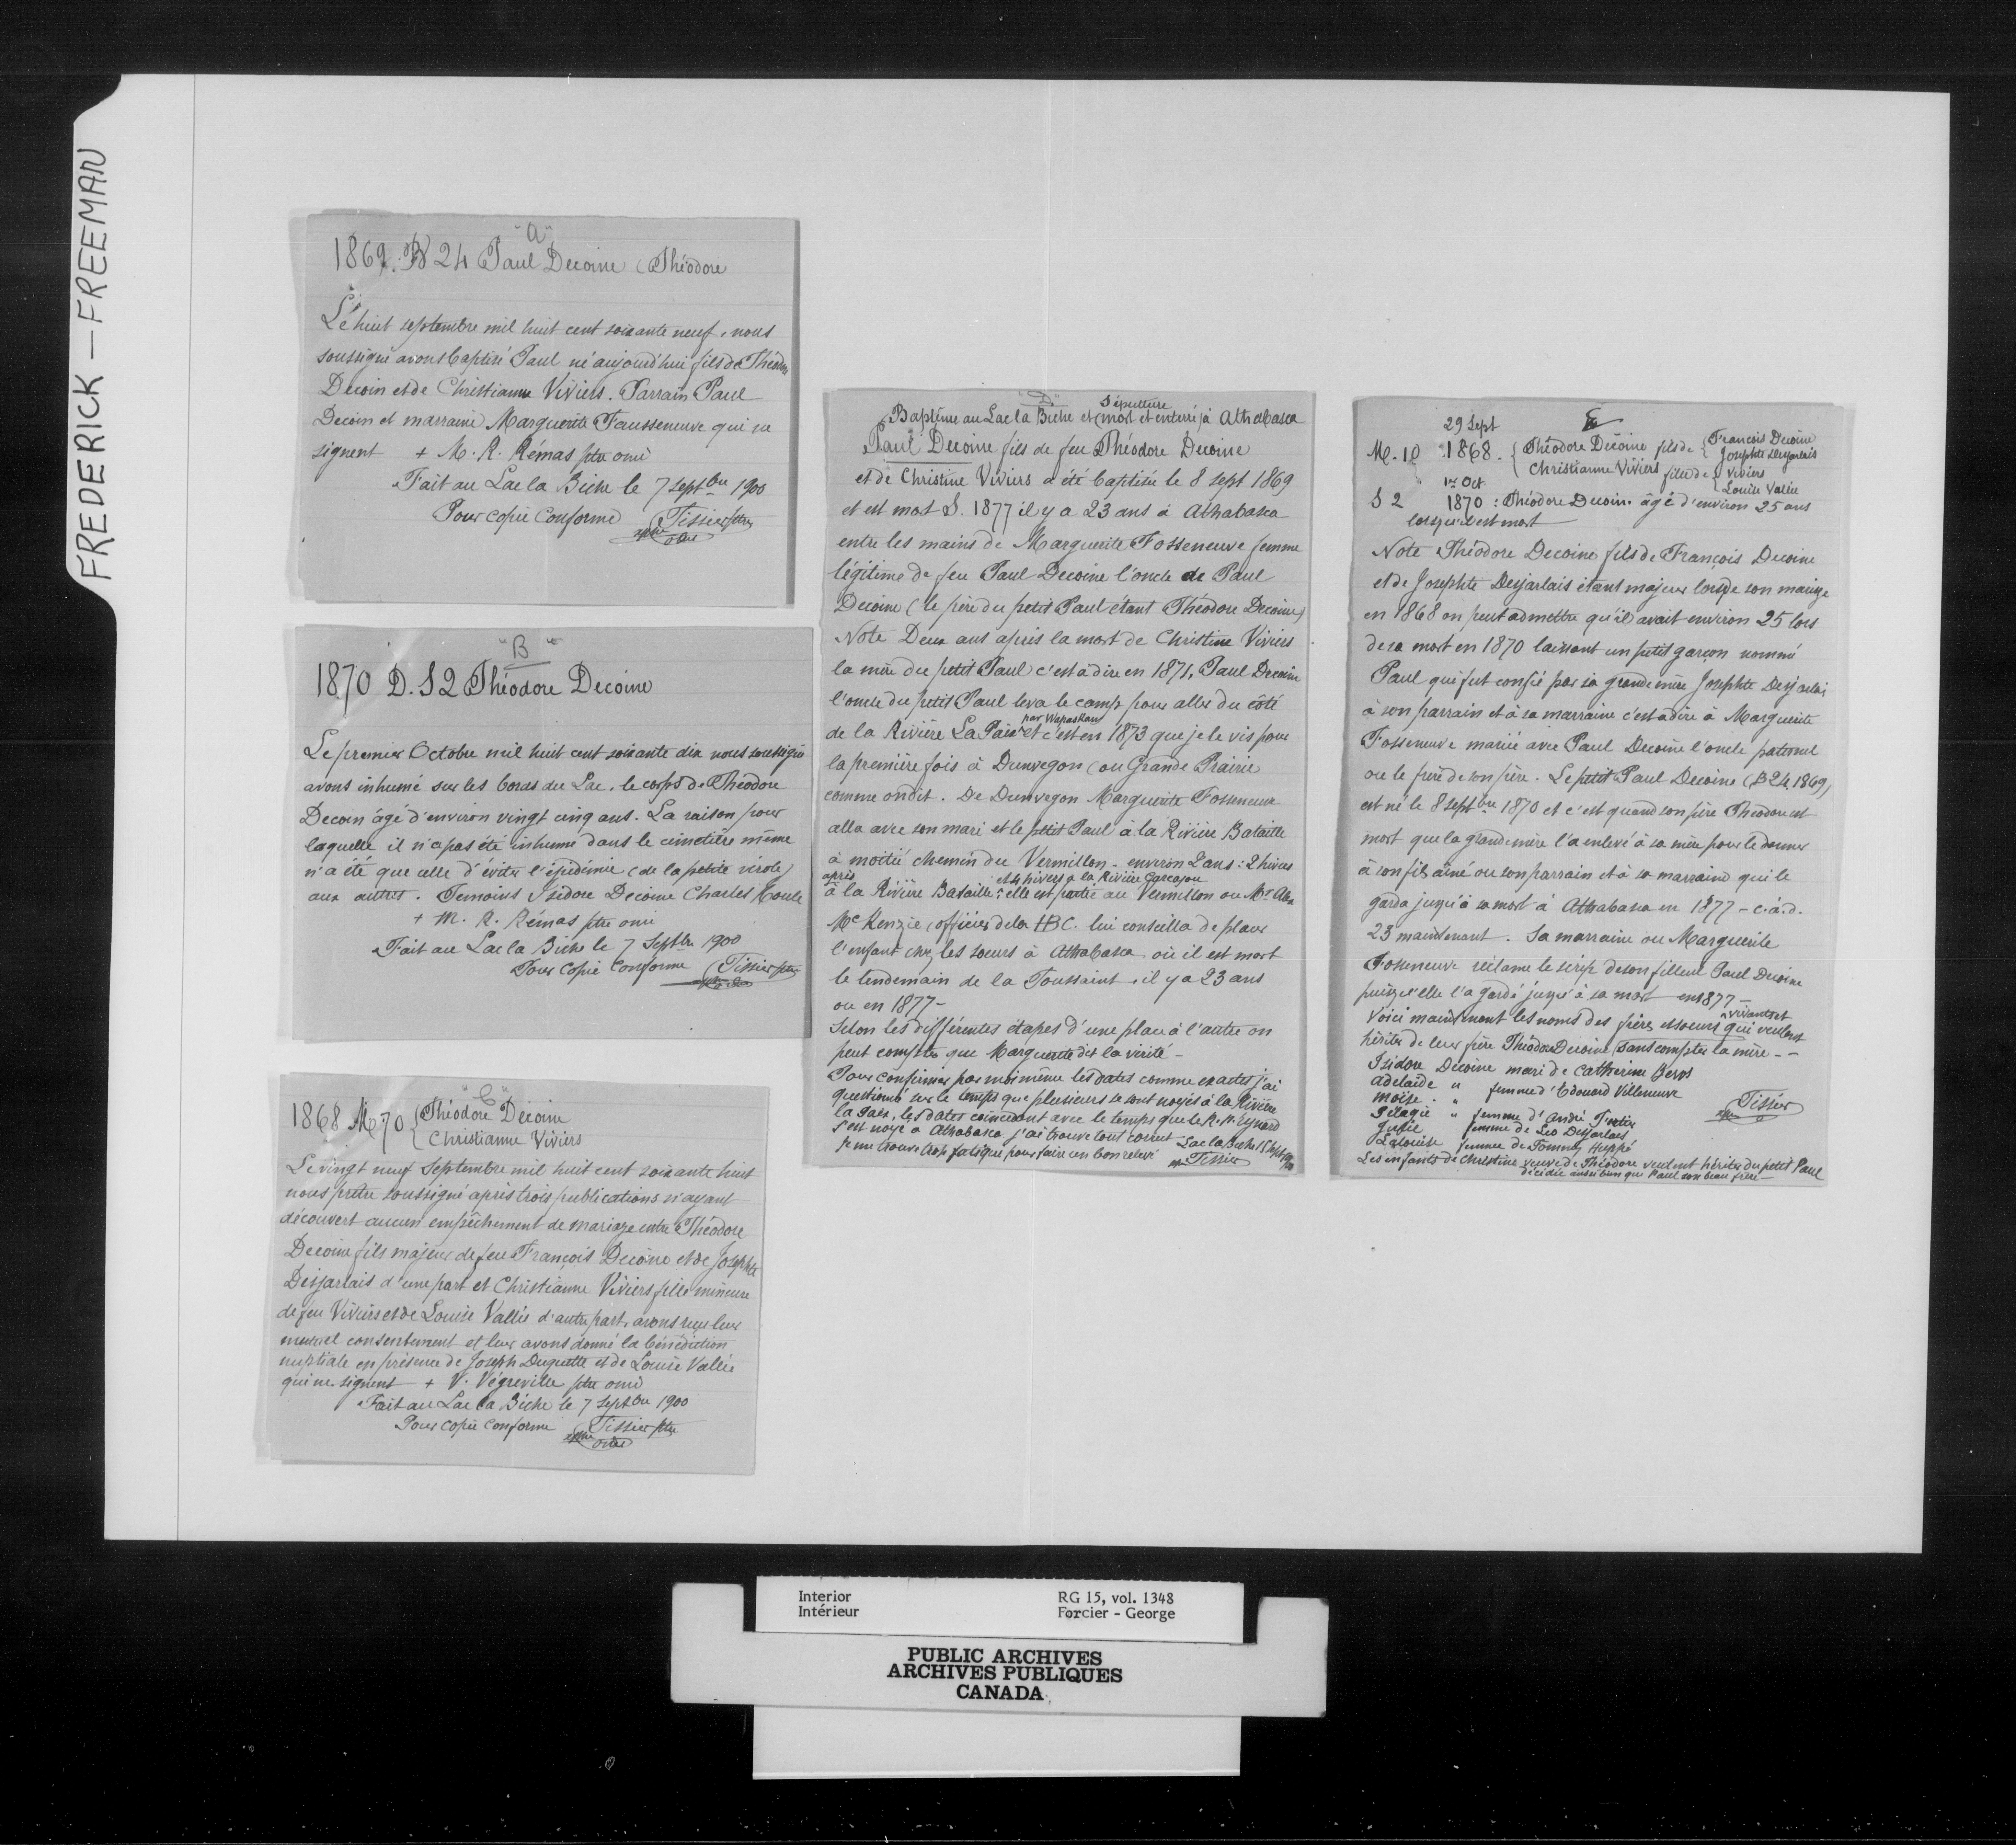 FREDERICK — FREEMAN
"A"
1869. B 24 Paul Decoine (Théodore
Le huit septembre mil huit cent soixante neuf, nous
soussigné avons baptisé Paul né aujourd'hui fils de Théodore
Decoin et de Christianne Viviers. Parrain Paul
Decoin et marraine Marguerite Fausseneuve qui ne
signent + M. R. Rémas ptre omi
Fait au Lac la Biche le 7 Septbre 1900
Pour copie conforme Tissier ptre
omi
"B"
1870 D. S 2 Théodore Decoine
Le premier Octobre mil huit cent soixante dix nous soussigné
avons inhumé sur les bords du Lac, le corps de Théodore
Decoin âgé d'environ vingt cinq ans. La raison pour
laquelle il n'a pas été inhumé dans le cimetière même
n'a été que celle d'éviter l'épidémie (de la petite vérole)
aux autres. Temoins Isidore Decoine Charles
+ M. R. Rémas ptre omi
Fait au Lac la Biche le 7 Septbre 1900
Pour copie conforme Tissier ptre
"C"
1868 M 70 { Théodore Decoine
{ Christianne Viviers
Le vingt neuf Septembre mil huit cent soixante huit
nous prêtre soussigné après trois publications n'ayant
découvert aucun empêchement de mariage entre Théodore
Decoine fils majeur de feu François Decoine et de Josephte
Desjarlais d'une part et Christianne Viviers fille mineure
de feu Viviers et de Louise Vallée d'autre part, avons reçu leur
mutuel consentement et leur avons donné la bénédiction
nuptiale en présence de Joseph Duquette et de Louise Vallée
qui ne signent + V. Végreville ptre omi
Fait au Lac la Biche le 7 Septbre 1900
Pour copie conforme Tissier ptre
"D"
Sépulture
Baptême au Lac la Biche et (mort et enterré) à Athabasca
Paul Decoine fils de feu Théodore Decoine
et de Christine Viviers a été baptisé le 8 sept 1869
et est mort S. 1877 il y a 23 ans à Athabaska
entre les mains de Marguerite Fosseneuve femme
légitime de feu Paul Decoine l'oncle de Paul
Decoine (le père du petit Paul étant Théodore Decoine)
Note Deux ans après la mort de Christine Viviers
la mère du petit Paul c'est à dire en 1871, Paul Decoine
l'oncle du petit Paul leva le camp pour aller du côté
par Wapaskaw
de la Rivière La Paix et c'est en 1873 que je le vis pour
la première fois à Dunvegon (ou Grande Prairie
comme on dit. De Dunvegon Marguerite Fosseneuve
alla avec son mari et le petit Paul à la Rivière Bataille
à moitié chemin du Vermillon - environ 2 ans: 2 hivers
après et 4 hivers à la Rivière Carcajou
à la Rivière Bataille: elle est partie au Vermillon ou Mr Alex
McKenzie (officier de la HBC. lui conseilla de placer
l'enfant chez les soeurs à Athabasca où il est mort
le lendemain de la Toussaint, il y a 23 ans
ou en 1877 -
Selon les différentes étapes d'une place à l'autre on
peut compter que Marguerite dit la vérité -
Pour confirmer par moi même les dates comme exactes j'ai
questionné sur le temps que plusieurs se sont noyés à la Rivière
la Paix, les dates coincident avec le temps que le R.P. Eynard
s'est noyé à Athabasca j'ai trouvé tout correct Lac la Biche 15 Sept 1900
Je me trouve trop fatigué pour faire un bon relevé Tissier
E
29 Sept
M. 10 1868. { Théodore Decoine fils de { François Decoine
Josephte Desjarlais
Christianne Viviers fille de { Viviers
Louise Valée
1er Oct
S 2 1870: Théodore Decoin âgé d'environ 25 ans
lorsqu'il est mort
Note Théodore Decoine fils de François Decoine
et de Josephte Desjarlais étant majeur lors de son mariage
en 1868 on peut admettre qu'il avait environ 25 lors
de sa mort en 1870 laissant un petit garçon nommé
Paul qui fut confié par sa grande mère Josephte Desjarlais
à son parrain et à sa marraine c'est à dire à Marguerite
Fosseneuve mariée avec Paul Decoine l'oncle paternel
ou le frère de son père. Le petit Paul Decoine (B 24 1869)
est né le 8 septbre 1870 et c'est quand son père Théodore est
mort que la grande mère l'a enlevé à sa mère pour le donner
à son fils aîné ou son parrain et à sa marraine qui le
garda jusqu'à sa mort à Athabasca en 1877 - c.à.d.
23 maintenant. Sa marraine ou Marguerite
Fosseneuve réclame le scrip de son filleul Paul Decoine
puisqu'elle l'a gardé jusqu'à sa mort en 1877 -
vivants et
Voici maintenant les noms des frères et soeurs qui veulent
hériter de leur frère Théodore Decoine (sans compter la mère - -
Isidore Decoine mari de Catherine
Adelaide " femme d'Edouard Villeneuve
Moïse. "
Pélagie " femme d'André
Julie femme de Léo Desjarlais
Lalouise femme de Tommy
Tissier
Les enfants de Christine veuve de Théodore veulent hériter du petit Paul
décédé aussi bien que Paul son beau frère -
Interior
Intérieur
RG 15, vol. 1348
Forcier - George
PUBLIC ARCHIVES
ARCHIVES PUBLIQUES
CANADA